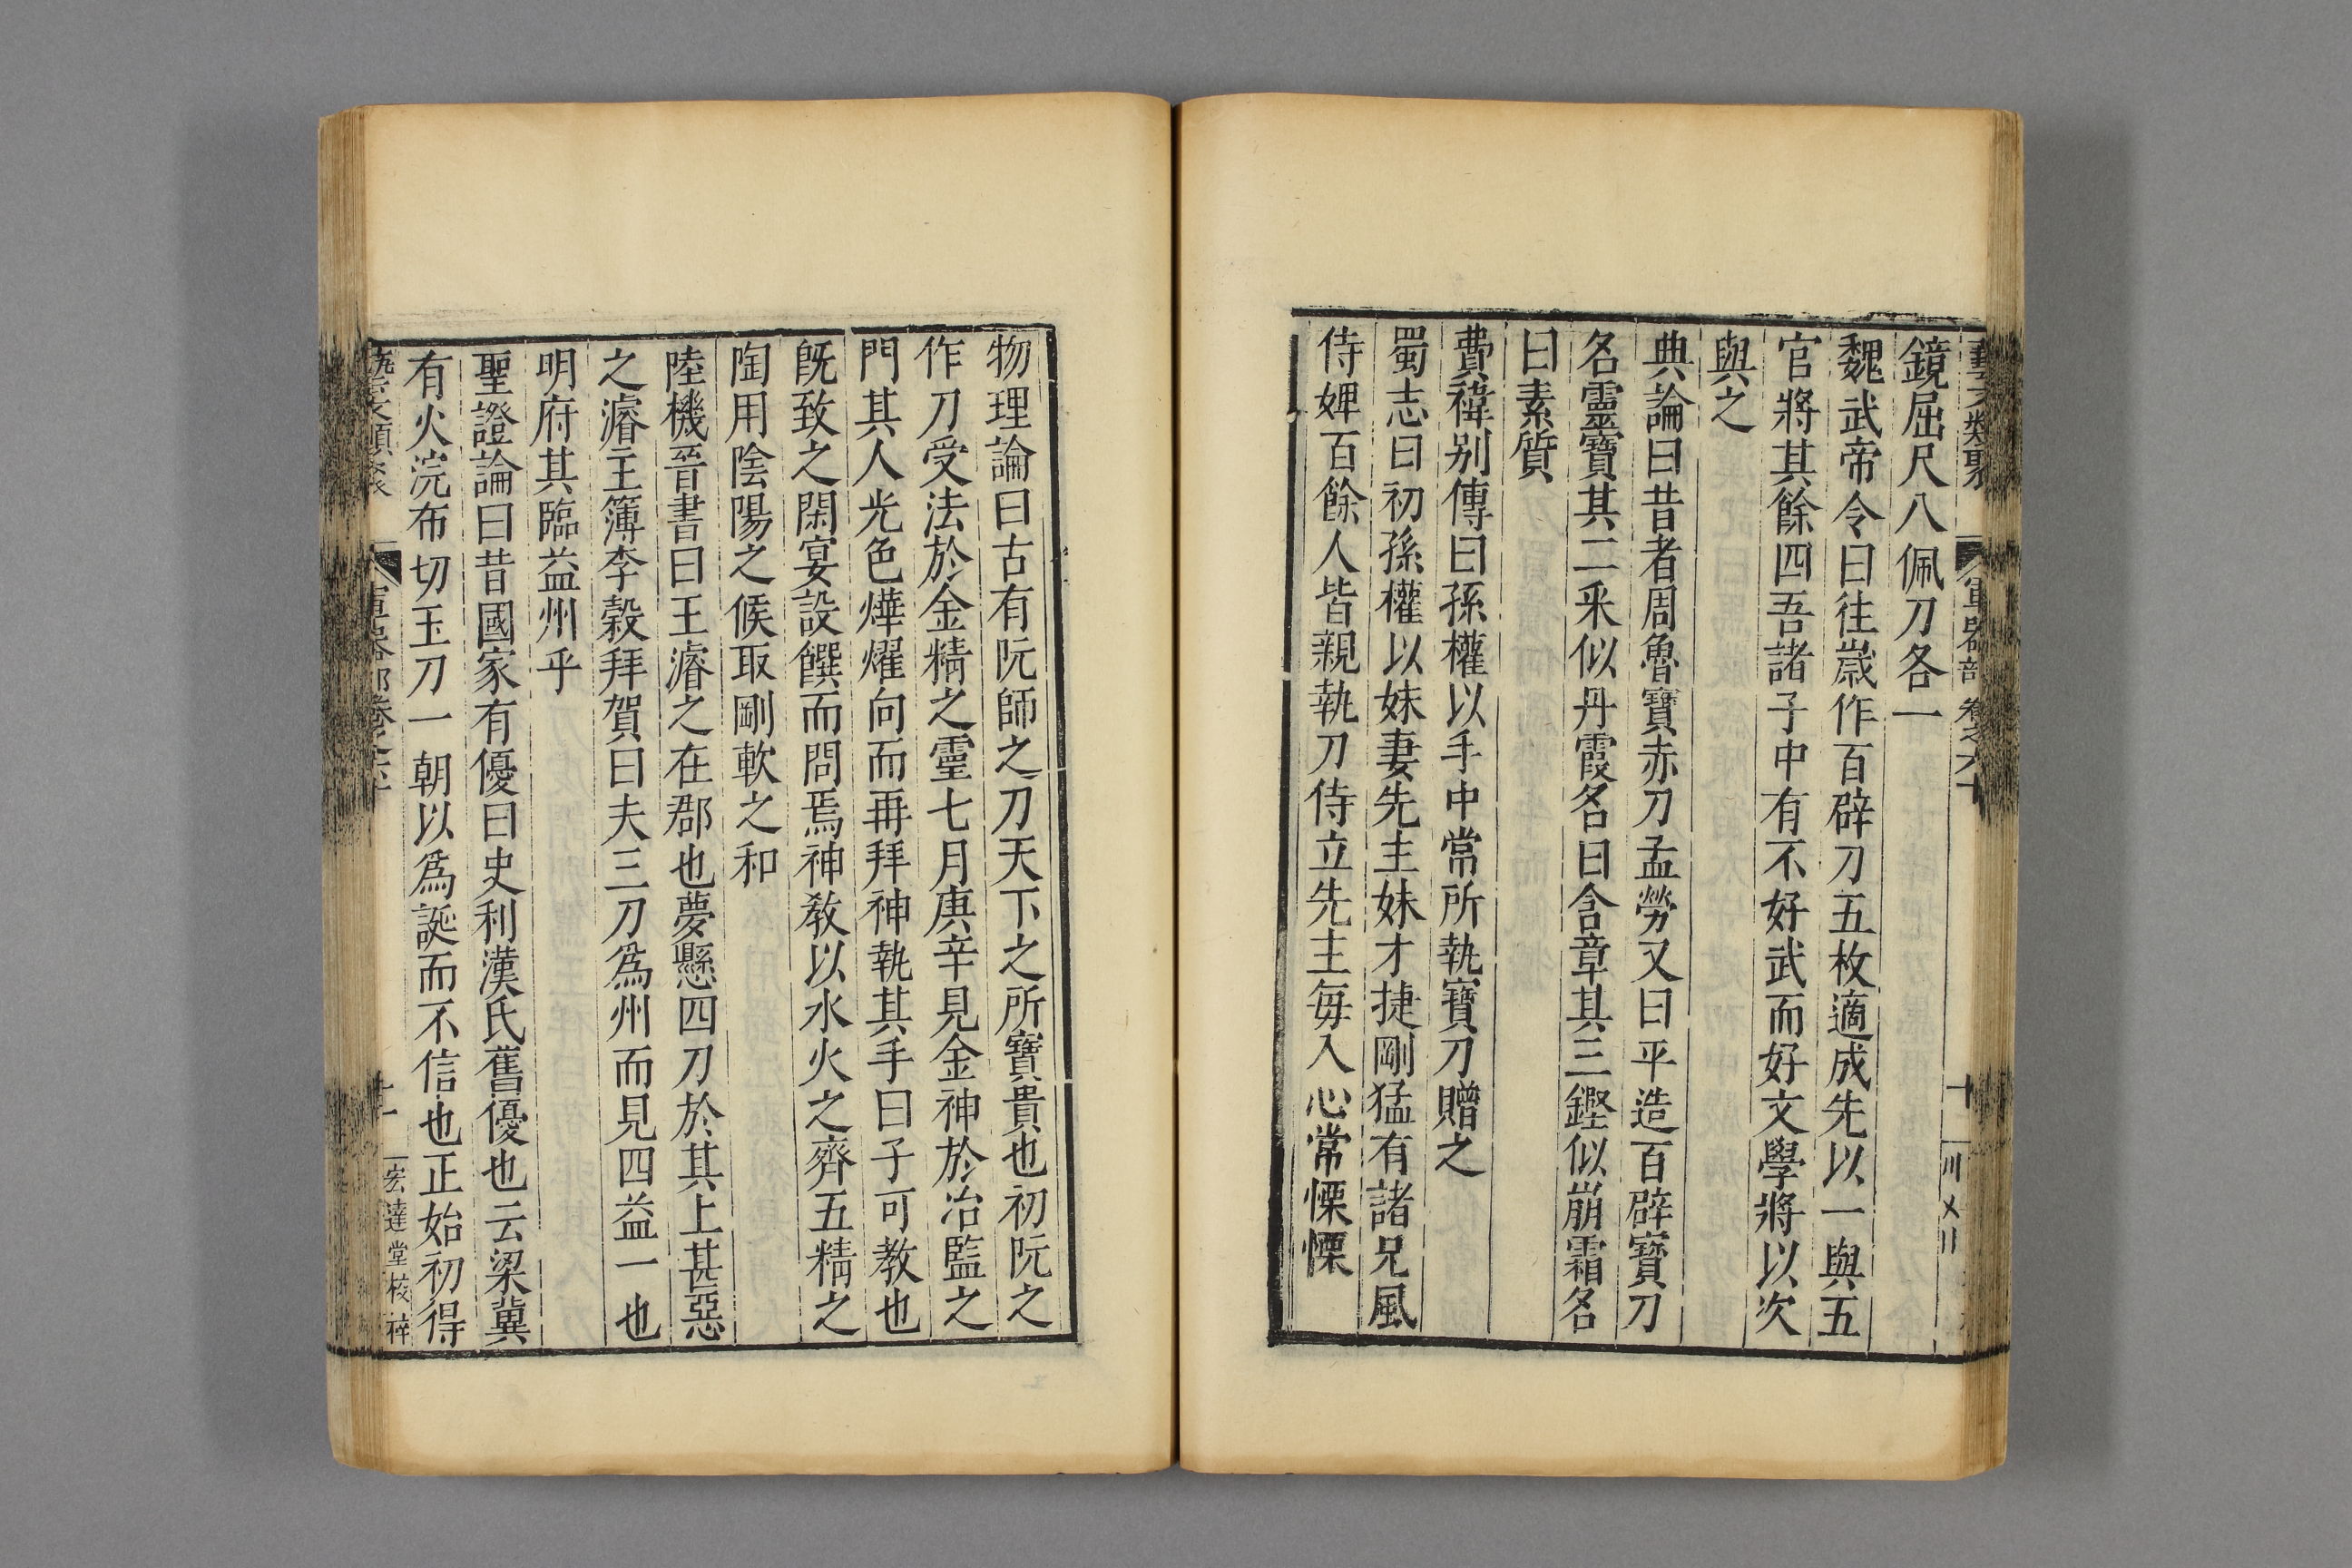 藝文類聚 軍器部 卷之六十 十
鏡屈尺八佩刀各一
魏武帝令曰往歲作百辟刀五枚適成先以一與五
官將其餘四吾諸子中有不好武而好文學將以次
與之
典論曰昔者周魯寶赤刀孟勞又曰平造百辟寶刀
名靈寶其二釆似丹霞名曰含章其三鏗似崩霜名
曰素質
費禕别傳曰孫權以手中常所執寶刀贈之
蜀志曰初孫權以妹妻先主妹才捷剛猛有諸兄風
侍婢百餘人皆親執刀侍立先主每入心常慄慄
物理論曰古有阮師之刀天下之所寶貴也初阮之
作刀受法於金精之靈七月庚辛見金神於冶監之
門其人光色煒燿向而再拜神執其手曰子可教也
旣致之閑宴設饌而問焉神敎以水火之齊五精之
陶用陰陽之候取剛軟之和
陸機晉書曰王濬之在郡也夢懸四刀於其上甚惡
之濬主簿李毅拜賀曰夫三刀爲州而見四益一也
明府其臨益州乎
聖證論曰昔國家有優曰史利漢氏舊優也云梁冀
有火浣布切玉刀一朝以爲誕而不信也正始初得
藝文類聚 軍器部 十一 宏達堂校梓